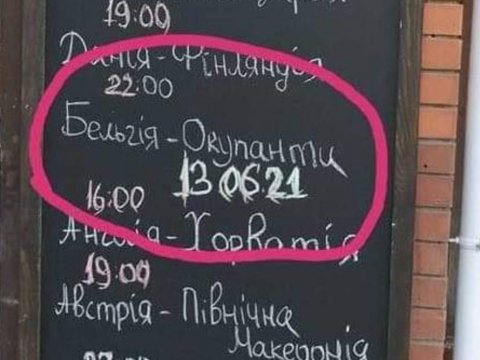 19:00
Данія-Фінляндія
22:00
Бельгія-Окупанти
13 06 21
16:00
Англія-Хорватія
19:00
Австрія-Північна
Македонія